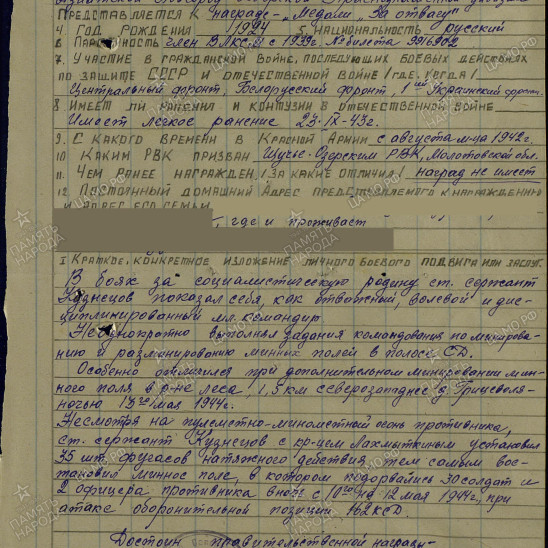 Представляется к награде - „Медали „За отвагу"
4 Год рождения 1924 5. Национальность русский
6 Партийность член ВЛКСМ с 1939г. № билета 9916902
7. Участие в гражданской войне, последующих боевых действиях
по защите СССР и отечественной войне /где, когда/
Центральный фронт, Белорусский фронт, 1ый Украинский фронт.
8 Имеет ли ранения и контузии в отечественной войне
Имеет легкое ранение 23-IX-43г.
9. С какого времени в Красной Армии с августа м-ца 1942г.
10 Каким РВК призван Щучье-Озерским РВК, Молотовской обл.
11 Чем ранее награжден /за какие отличия/ наград не имеет
12 Постоянный домашний адрес представляемого к награждению
и адрес его семьи
, где и проживает
I Краткое, конкретное изложение личного боевого подвига или заслуг.
В боях за социалистическую родину ст. сержант
Кузнецов показал себя, как отважный, волевой и дис-
циплинированный мл. командир.
Неоднократно выполнял задания командования по минирова-
нию и разминированию минных полей в полосе СД.
Особенно отличился при дополнительном минировании мин-
ного поля в р-не леса 1,5 км северозападнее д. Грицеволя-
ночью мая 1944г.
Несмотря на пулеметно-минометный огонь противника,
ст. сержант Кузнецов с кр-цем Лахмыткиным установил
35 шт. фугасов натяжного действия, тем самым вос-
становил минное поле, в котором подорвались 30 солдат и
2 офицера противника в ночь с 10го на 12 мая 1944г, при
атаке оборонительной позиции 162 КСД.
Достоин правительственной награды-
ПАМЯТЬ НАРОДА
ЦАМО.РФ